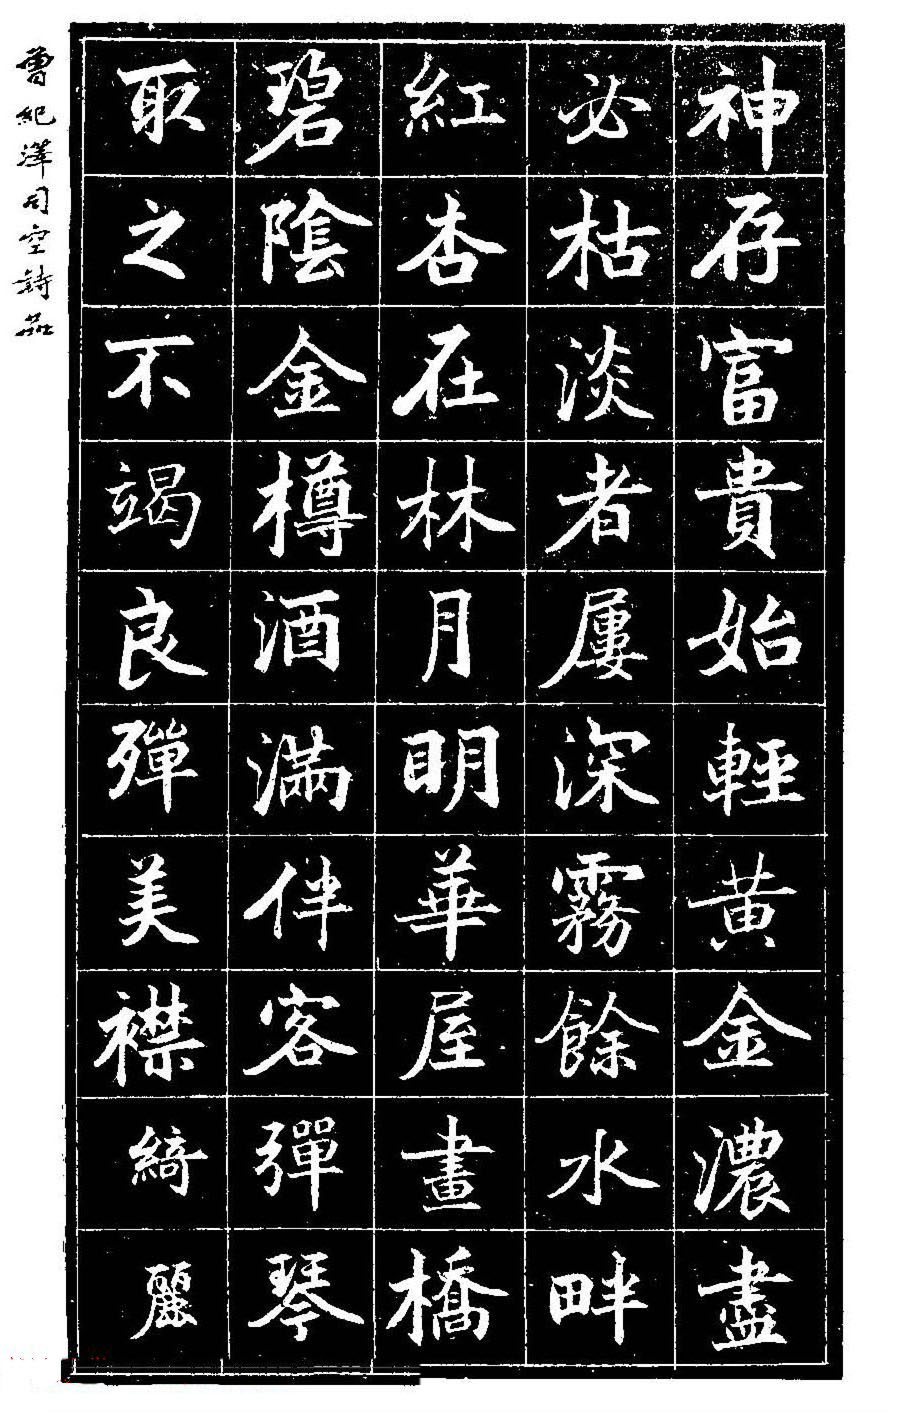 神存富貴始輕黄金濃盡
必枯淡者屢深霧餘水畔
紅杏在林月明華屋畫橋
碧陰金樽酒滿伴客彈琴
取之不竭良殫美襟綺麗
曾紀澤司空詩品